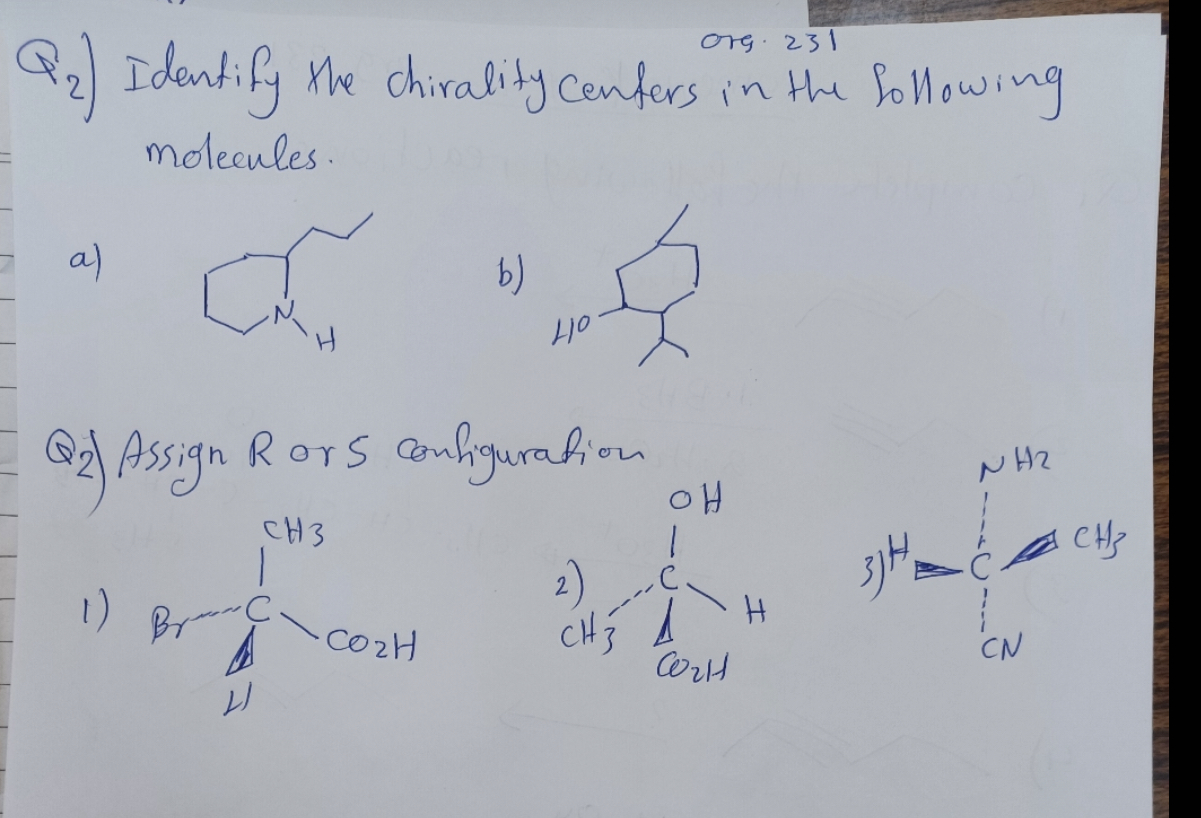 org. 231
Q2) Identify the chirality centers in the following
molecules.
a)
N
H
b)
HO
Q2) Assign R or S configuration
1)
CH3
Br C CO2H
H
2)
OH
C
CH3 H
CO2H
3)
NH2
H C CH3
CN